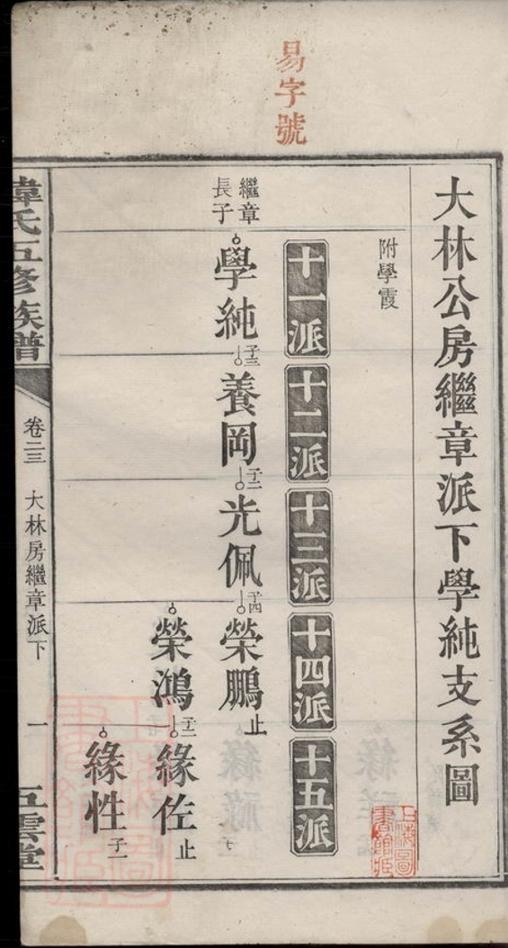 易字號
大林公房繼章派下學純支系圖
附學霞
十一派
十二派
十三派
十四派
十五派
繼章
長子
學純
子三
養岡
子二
光佩
子四
榮鵬
止
榮鴻
子二
緣佐
止
緣性
子一
韋氏五修族譜
卷二三
大林房繼章派下
一
五雲堂